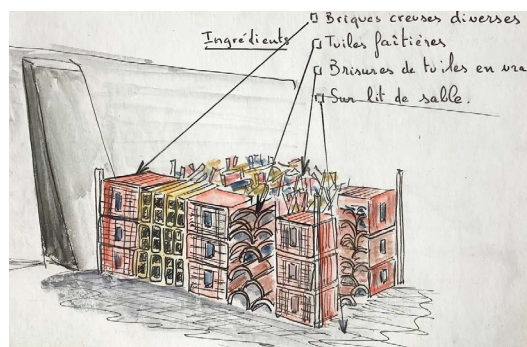 Ingrédients
Briques creuses diverses
Tuiles faîtières
Brisures de tuiles en vra
Sur lit de sable.